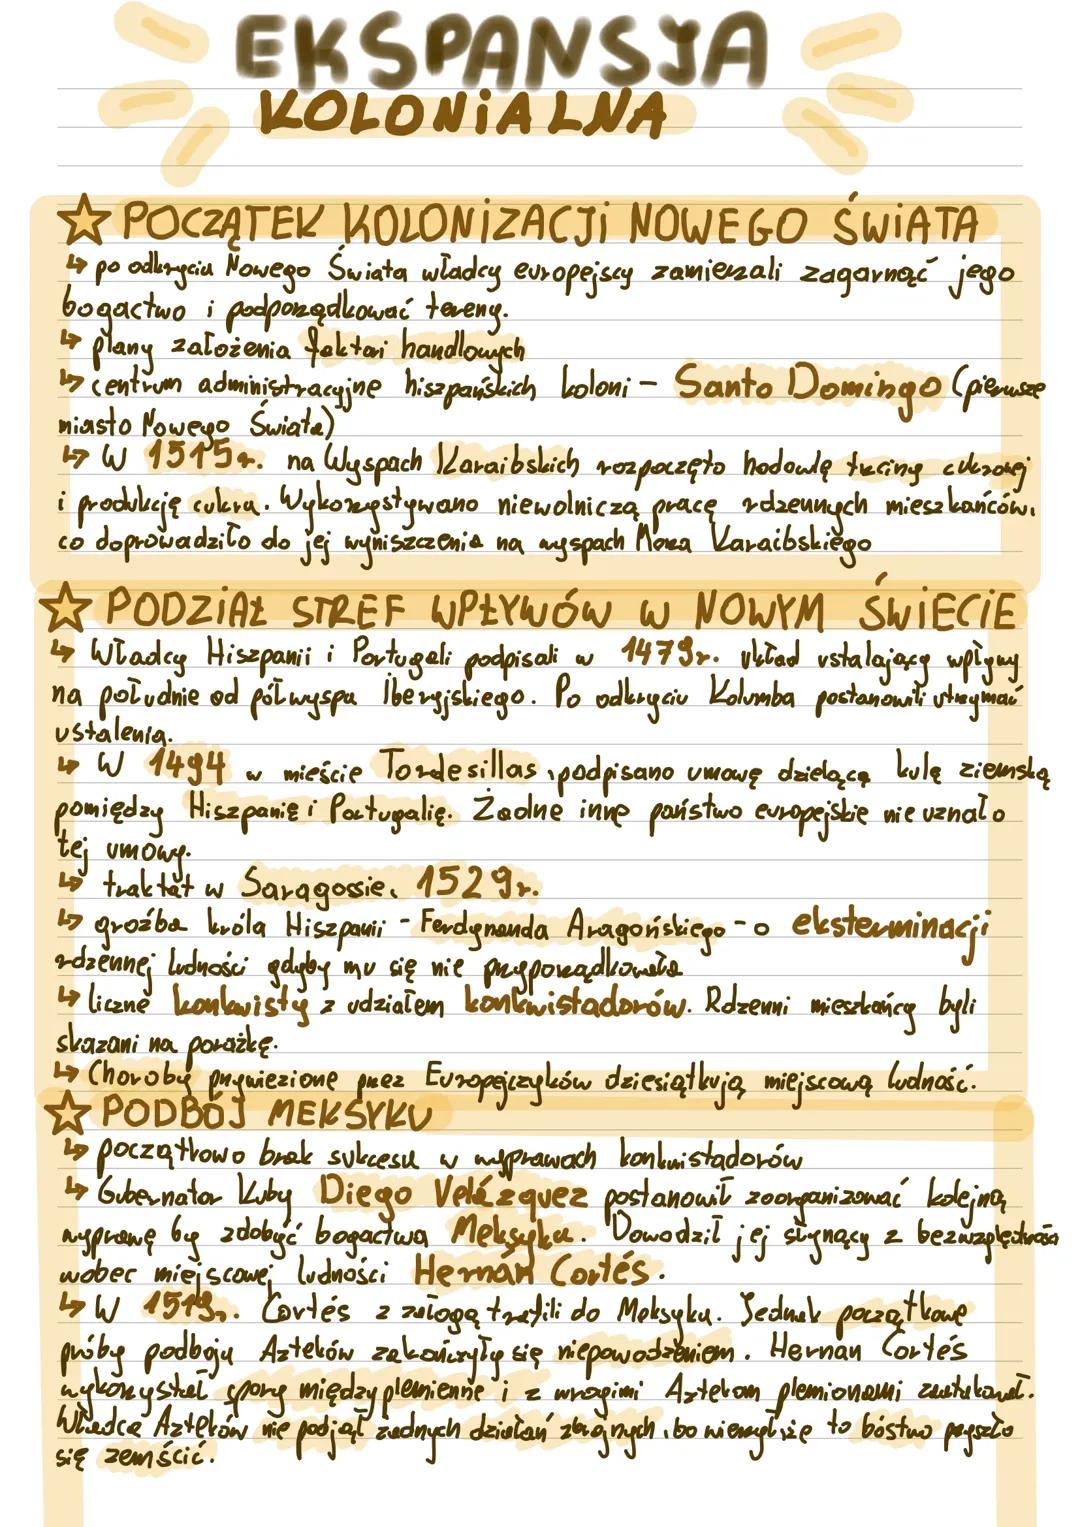 EKSPANSJA
KOLONIALNA
POCZĄTEK KOLONIZACJI NOWEGO ŚWIATA
↳ po odkryciu Nowego Świata władcy europejscy zamierzali zagarnąć jego
bogactwo i podporządkować tereny.
↳ plany założenia faktori handlowych
↳ centrum administracyjne hiszpańskich koloni - Santo Domingo (pierwsze
miasto Nowego Świata)
↳ W 1515r. na Wyspach Karaibskich rozpoczęto hodowlę trzciny cukrowej
i produkcję cukru. Wykorzystywano niewolniczą pracę rdzennych mieszkańców,
co doprowadziło do jej wyniszczenia na wyspach Morza Karaibskiego
PODZIAŁ STREF WPŁYWÓW W NOWYM ŚWIECIE
↳ Władcy Hiszpanii i Portugali podpisali w 1479r. układ ustalający wpływy
na południe od półwyspu Iberyjskiego. Po odkryciu Kolumba postanowili utrzymać
ustalenia.
↳ W 1494 w mieście Tordesillas, podpisano umowę dzielącą kulę ziemską
pomiędzy Hiszpanię i Portugalię. Żadne inne państwo europejskie nie uznało
tej umowy.
↳ traktat w Saragossie, 1529r.
↳ groźba króla Hiszpanii - Ferdynanda Aragońskiego - o eksterminacji
rdzennej ludności gdyby mu się nie przyporządkowała
↳ liczne konkwisty z udziałem konkwistadorów. Rdzenni mieszkańcy byli
skazani na porażkę.
↳ Choroby przywiezione przez Europejczyków dziesiątkują miejscową ludność.
PODBÓJ MEKSYKU
↳ początkowo brak sukcesu w wyprawach konkwistadorów
↳ Gubernator Kuby Diego Velázquez postanowił zoorganizować kolejną
wyprawę by zdobyć bogactwa Meksyku. Dowodził jej słynący z bezwzględności
wobec miejscowej ludności Hernán Cortés.
↳ W 1519r. Cortés z załogą trafili do Meksyku. Jednak początkowe
próby podboju Azteków zakończyły się niepowodzeniem. Hernan Cortés
wykorzystał spory międzyplemienne i z wrogimi Aztekom plemionami zaatakował.
Władca Azteków nie podjął żadnych działań zbrojnych, bo wierzył że to bóstwo przyszło
się zemścić.